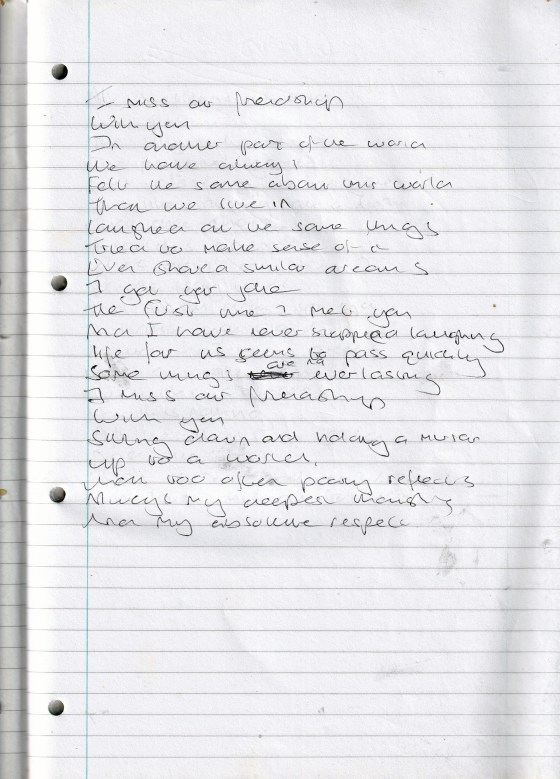 I miss our friendship
With you
In another part of the world
We have always
Felt the same about this world
That we live in
Laughed at the same things
Tried to make sense of it
Even shared similar dreams
I got your joke
The first time I met you
And I have never stopped laughing
life for us seems to pass quickly
Some things are everlasting
I miss our friendship
With you
Sitting down and holding a mirror
up to a world.
That too often poorly reflects
Always my deepest thoughts
And my absolute respect